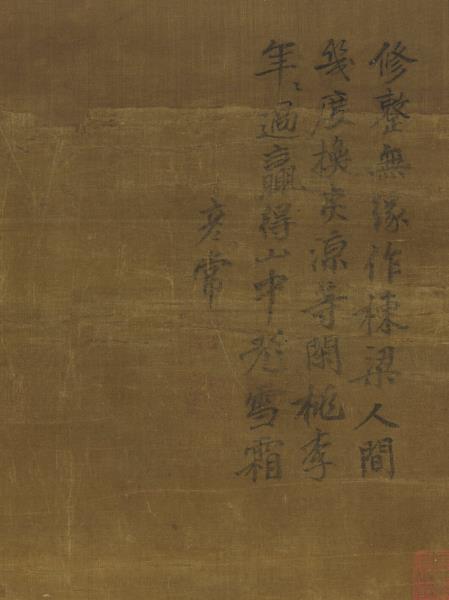 修整無緣作棟梁人間
幾度換炎涼等閑桃李
年〻過贏得山中飽雪霜
彥常